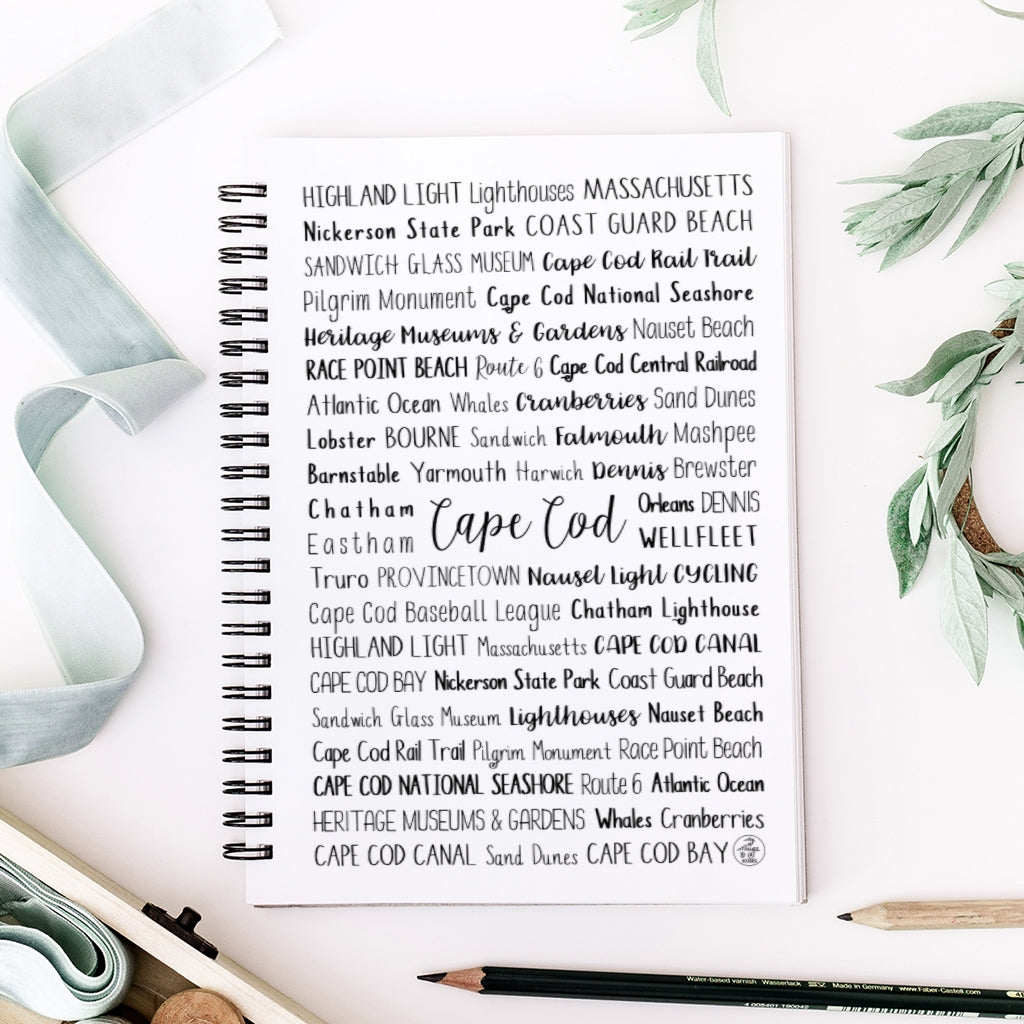 HIGHLAND LIGHT Lighthouses MASSACHUSETTS
Nickerson State Park COAST GUARD BEACH
SANDWICH GLASS MUSEUM Cape Cod Rail Trail
Pilgrim Monument Cape Cod National Seashore
Heritage Museums & Gardens Nauset Beach
RACE POINT BEACH Route 6 Cape Cod Central Railroad
Atlantic Ocean Whales Cranberries Sand Dunes
Lobster BOURNE Sandwich Falmouth Mashpee
Barnstable Yarmouth Harwich Dennis Brewster
Chatham
Eastham
Cape Cod
Orleans DENNIS
WELLFLEET
Truro PROVINCETOWN Nauset Light CYCLING
Cape Cod Baseball League Chatham Lighthouse
HIGHLAND LIGHT Massachusetts CAPE COD CANAL
CAPE COD BAY Nickerson State Park Coast Guard Beach
Sandwich Glass Museum Lighthouses Nauset Beach
Cape Cod Rail Trail Pilgrim Monument Race Point Beach
CAPE COD NATIONAL SEASHORE Route 6 Atlantic Ocean
HERITAGE MUSEUMS & GARDENS Whales Cranberries
CAPE COD CANAL Sand Dunes CAPE COD BAY
Water-based varnish Wasserlack Made in Germany www.Faber-Castell.com
4 005401 190042